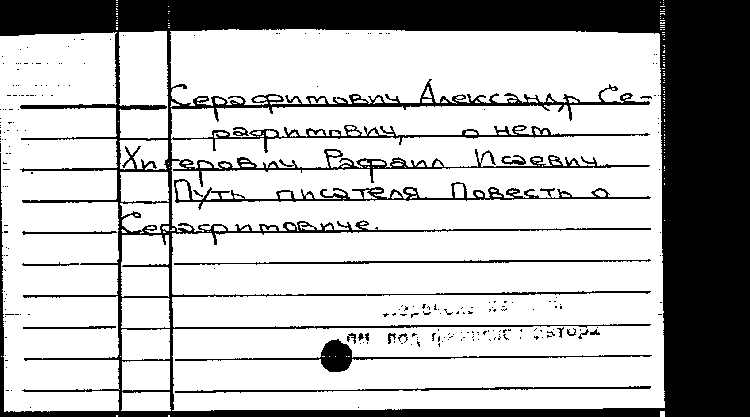 Серафимович, Александр Се-
рафимович, о нем
Хигерович, Рафаил Исаевич.
Путь писателя. Повесть о
Серафимовиче.
под автора